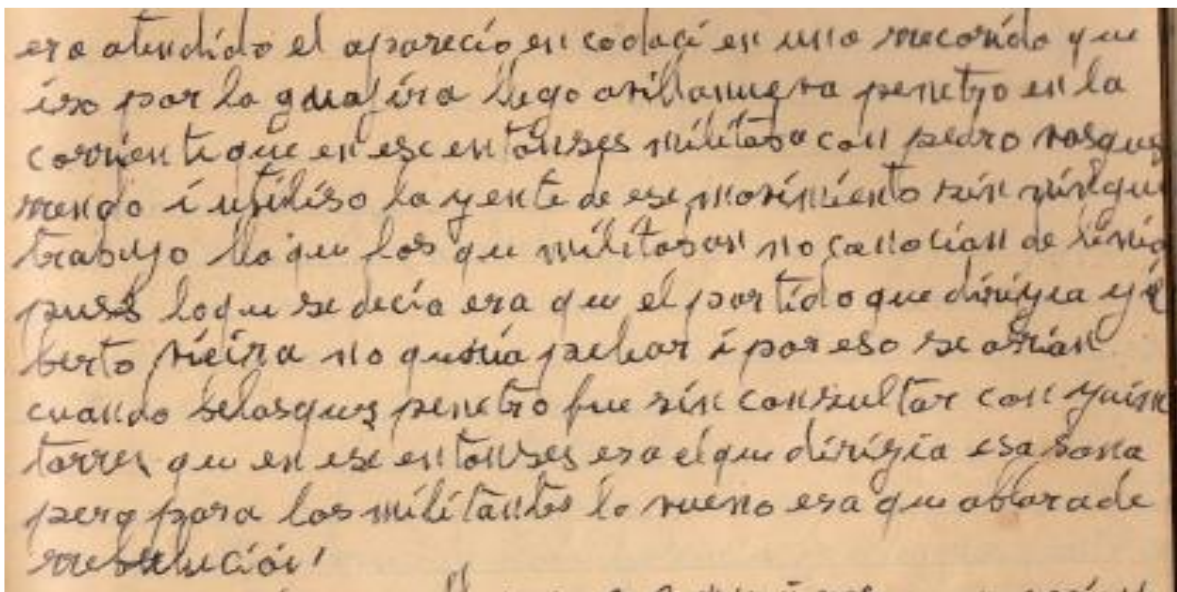 era atendido el aparecio en codaçi en uno rrecorido que
iso por la guajira llego avillanueva penetro en la
corriente que en ese entonses militava con pedro vasques
rrendo i utiliso la jente de ese movimiento sin ningun
trabajo lla que los que militavan no conocian de linia
pues loque se decia era que el partido que dirijia jil
berto vieira no queria peliar i por eso se avrian
cuando velasques penetro fue sin consultar con jaime
torres que en ese entonses era el que dirijia esa sona
pero para los militantes lo vueno era que ablara de
rrevolucion